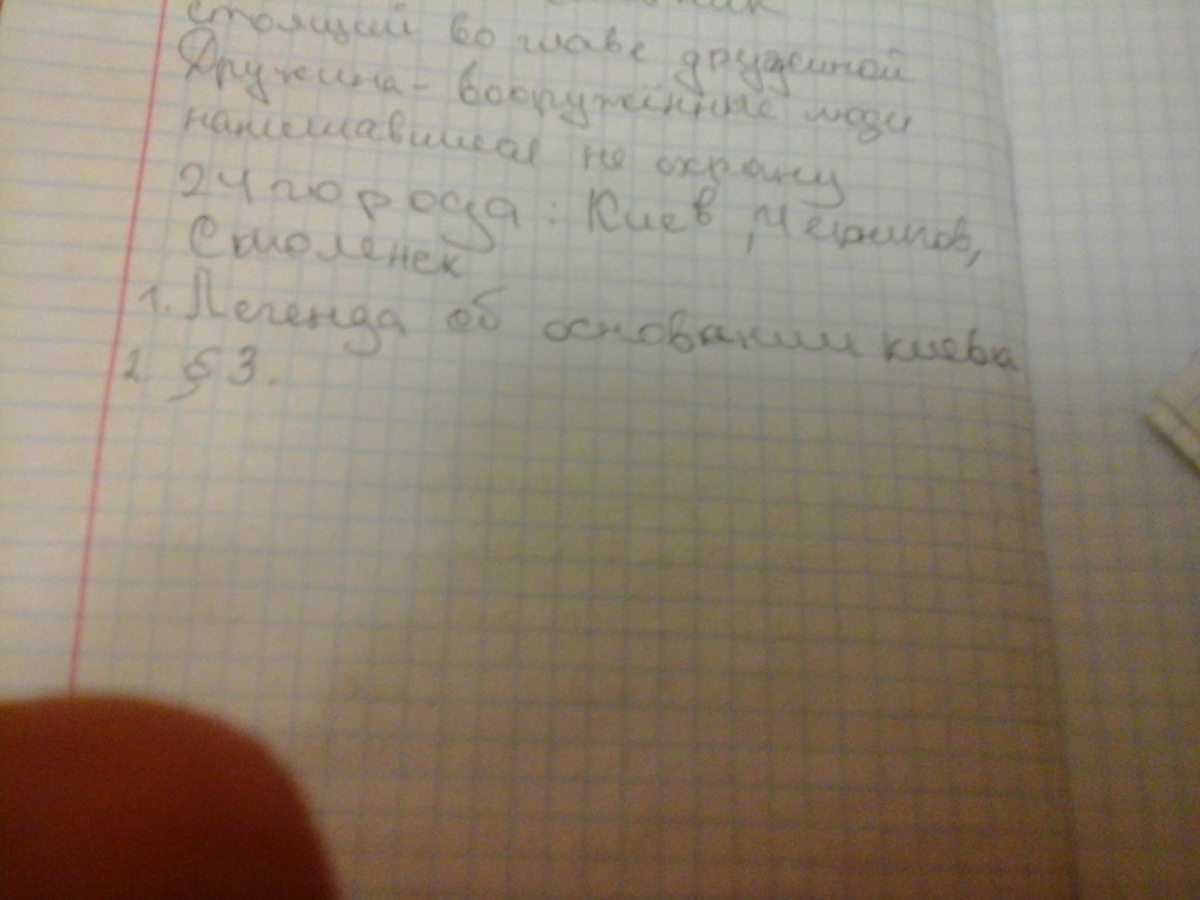 стоящий во главе дружиной
Дружина - вооружённые люди
не охрану
24 города: Киев, Чернигов,
Смоленск
1. Легенда об основании киева
2 § 3.